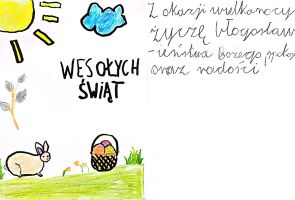 WESOŁYCH
ŚWIĄT
Z okazji wielkanocy
życzę błogosław
-ieństwa Bożego
oraz radości